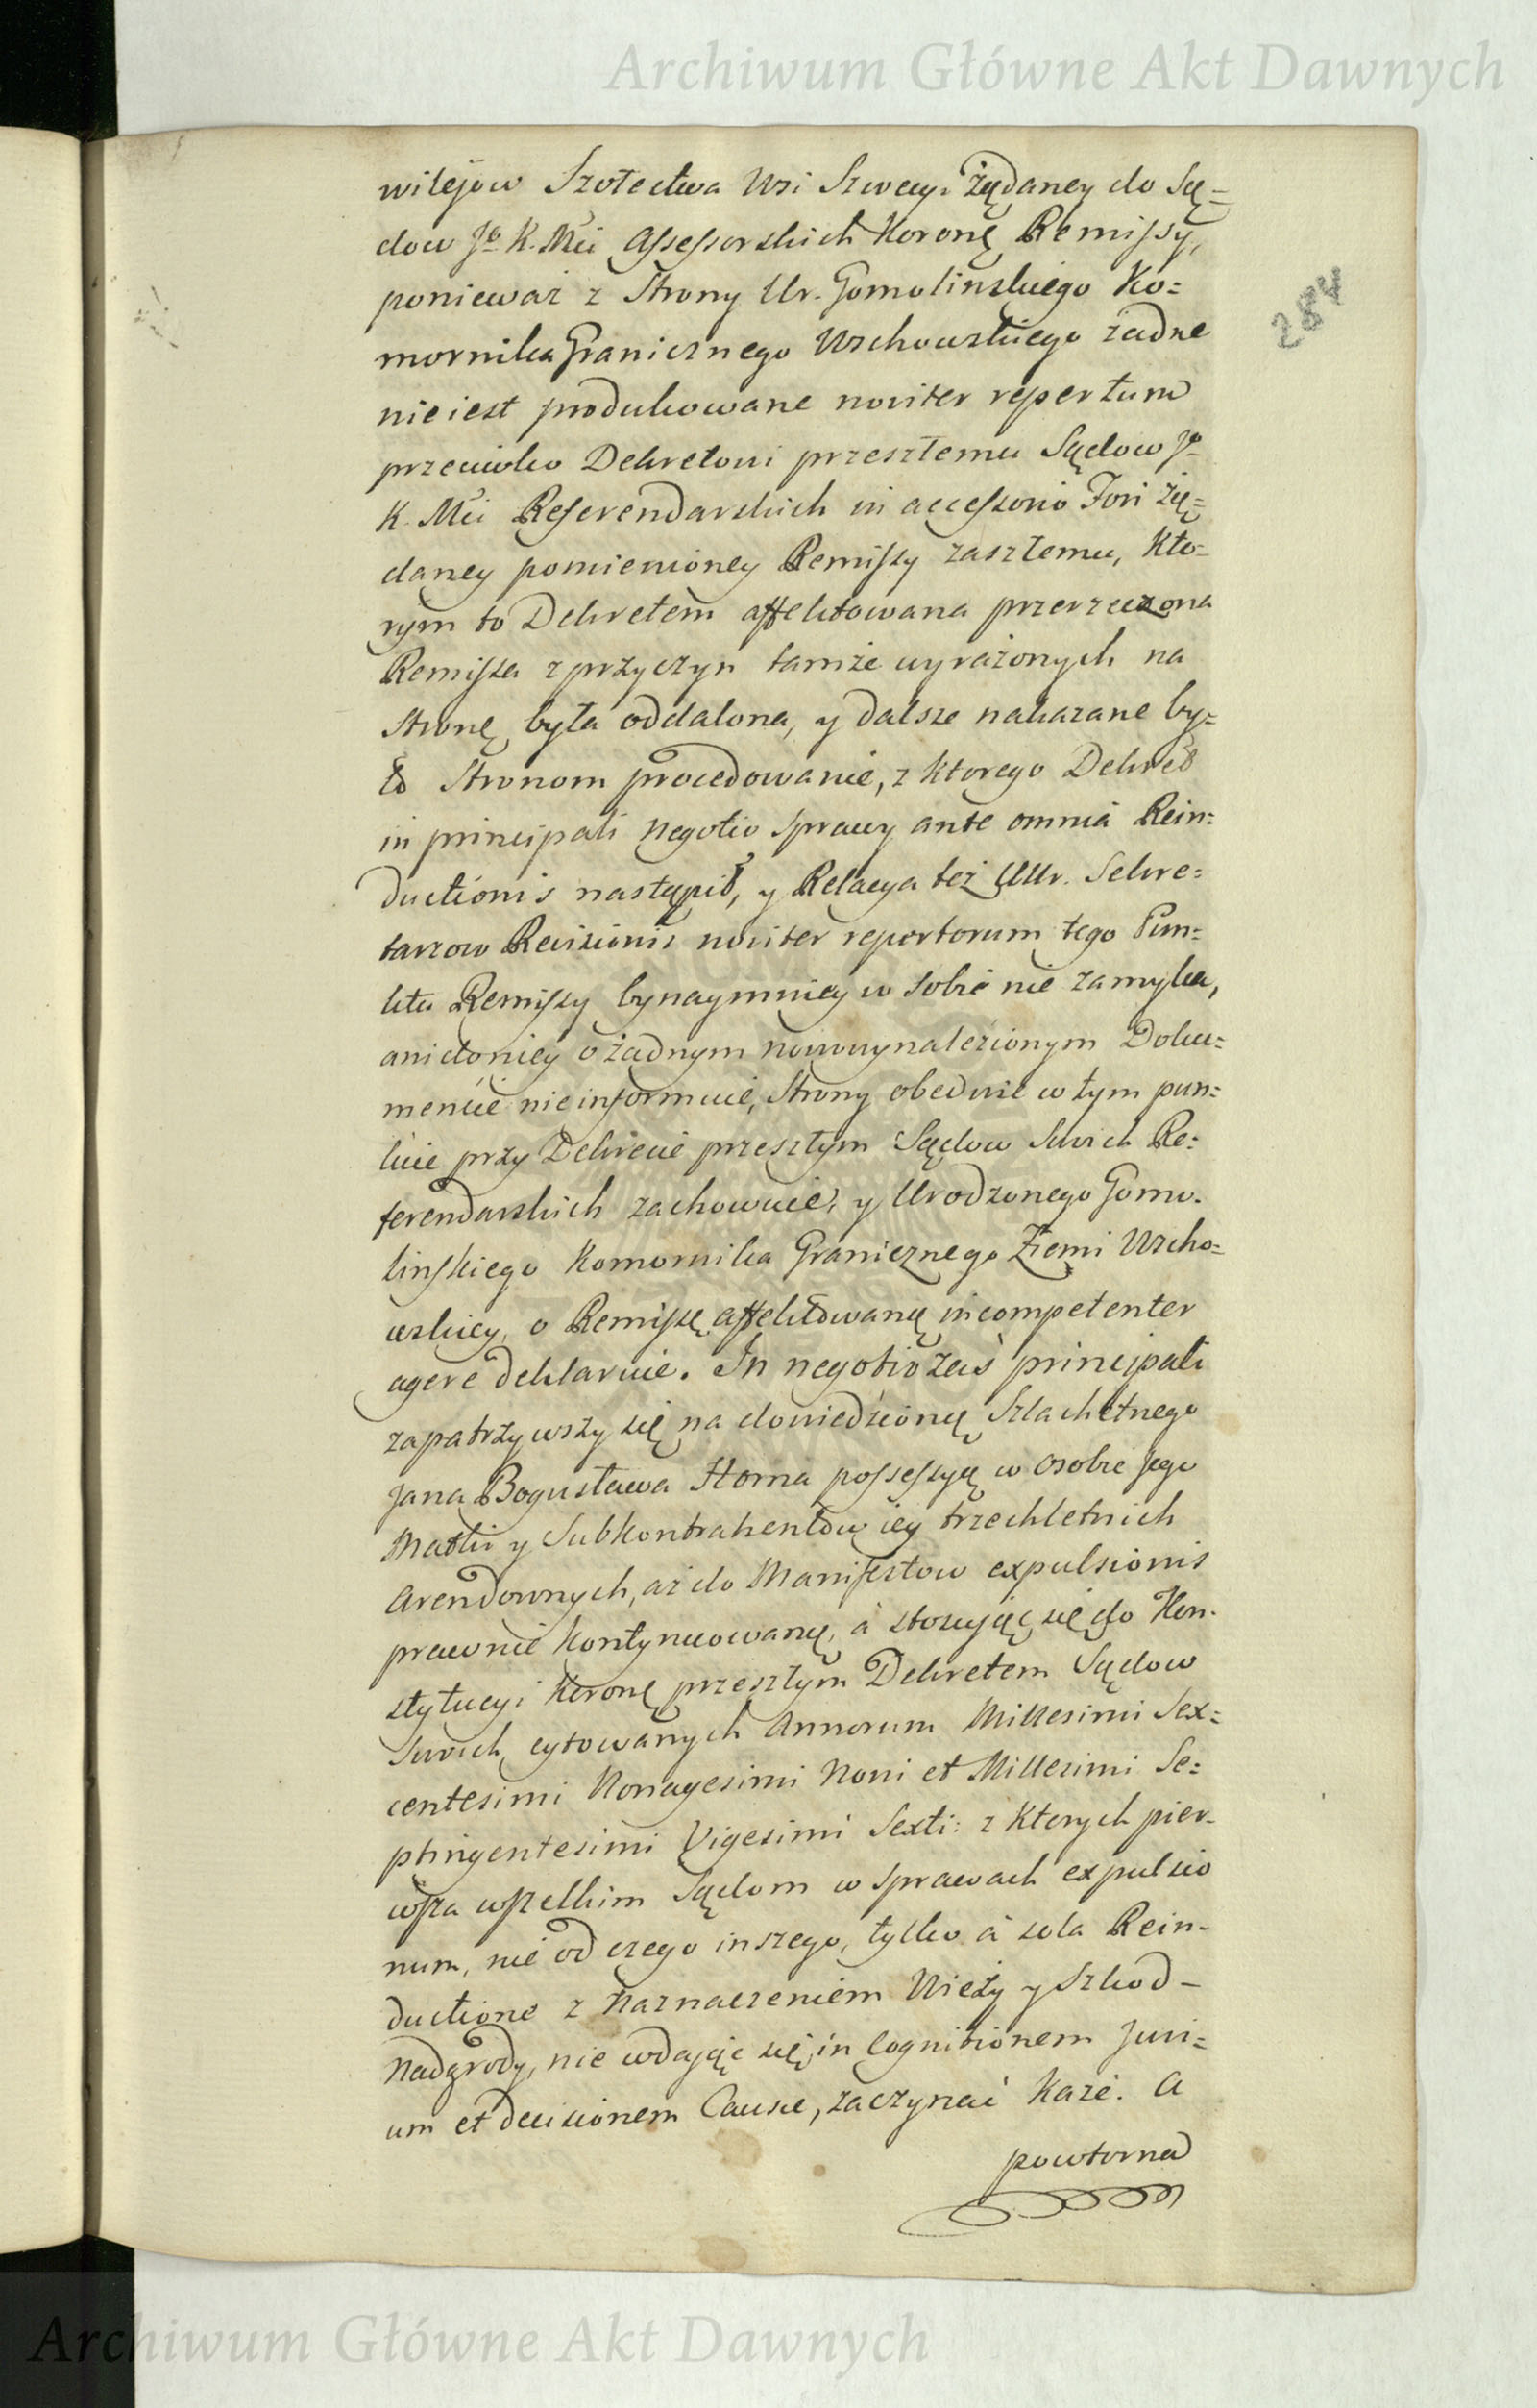 Archiwum Główne Akt Dawnych
wilejow Szołectwa Wsi Szwecyi żądaney do Są=
dow Jº K. Mci Assessorskich Koronę Remissy,
ponieważ z Strony Ur. Gomolinskiego Ko=
mornika Granicznego Wschowskiego żadne
nieiest produkowane noviter repertum
przeciwko Dekretowi przeszłemu Sądow Jº
K. Mci Referendarskich in accessorio Fori żą=
daney pomienioney Remissy zaszłemu, Kto=
rym to Dekretem affektowana przerzeczona
Remissa z przyczyn tamże wyrażonych na
Stronę była oddalona, y dalsze nakazane by=
ło Stronom procedowanie, z ktorego Dekret
in principali negotio sprawy ante omnia Rein=
ductionis nastąpił, y Relacya też UUr. Sekre=
tarzow Revisionis noviter repertorum tego Pun=
ktu Remissy bynaymniey w sobie nie zamyka,
ani doniey o żadnym nowowynalezionym Doku=
mencie nie informuie, Strony obedwie w tym pun=
kcie przy Dekrecie przeszłym Sądow Swoich Re=
ferendarskich zachowuie, y Urodzonego Gomo-
linskiego Komornika Granicznego Ziemi Wscho=
wskiey, o Remissę affektowaną incompetenter
agere deklaruie. In negotio zaś principali
zapatrzywszy się na dowiedzioną Szlachetnego
Jana Bogusława Horna possessyą w osobie Jego
Matki y Subkontrahentow iey trzechletnich
Arendownych, aż do Manifestow expulsionis
prawnie kontynuowaną, á stosuiąc się do Kon-
stytucyi Koronę przeszłym Dekretem Sądow
Swoich cytowanych Annorum Millesimi Sex=
centesimi Nonagesimi Noni et Millesimi Se=
ptingentesimi Vigesimi Sexti: z ktorych pier-
wsza wszelkim Sądom w sprawach expulsio
num, nie od czego inszego, tylko á sola Rein-
ductione z Naznaczeniem Wieży y Szkod-
Nadgrody, nie wdając się in Cognitionem Juri=
um et decisionem Causæ, zaczynać każe. A
powtorna
284
Archiwum Główne Akt Dawnych